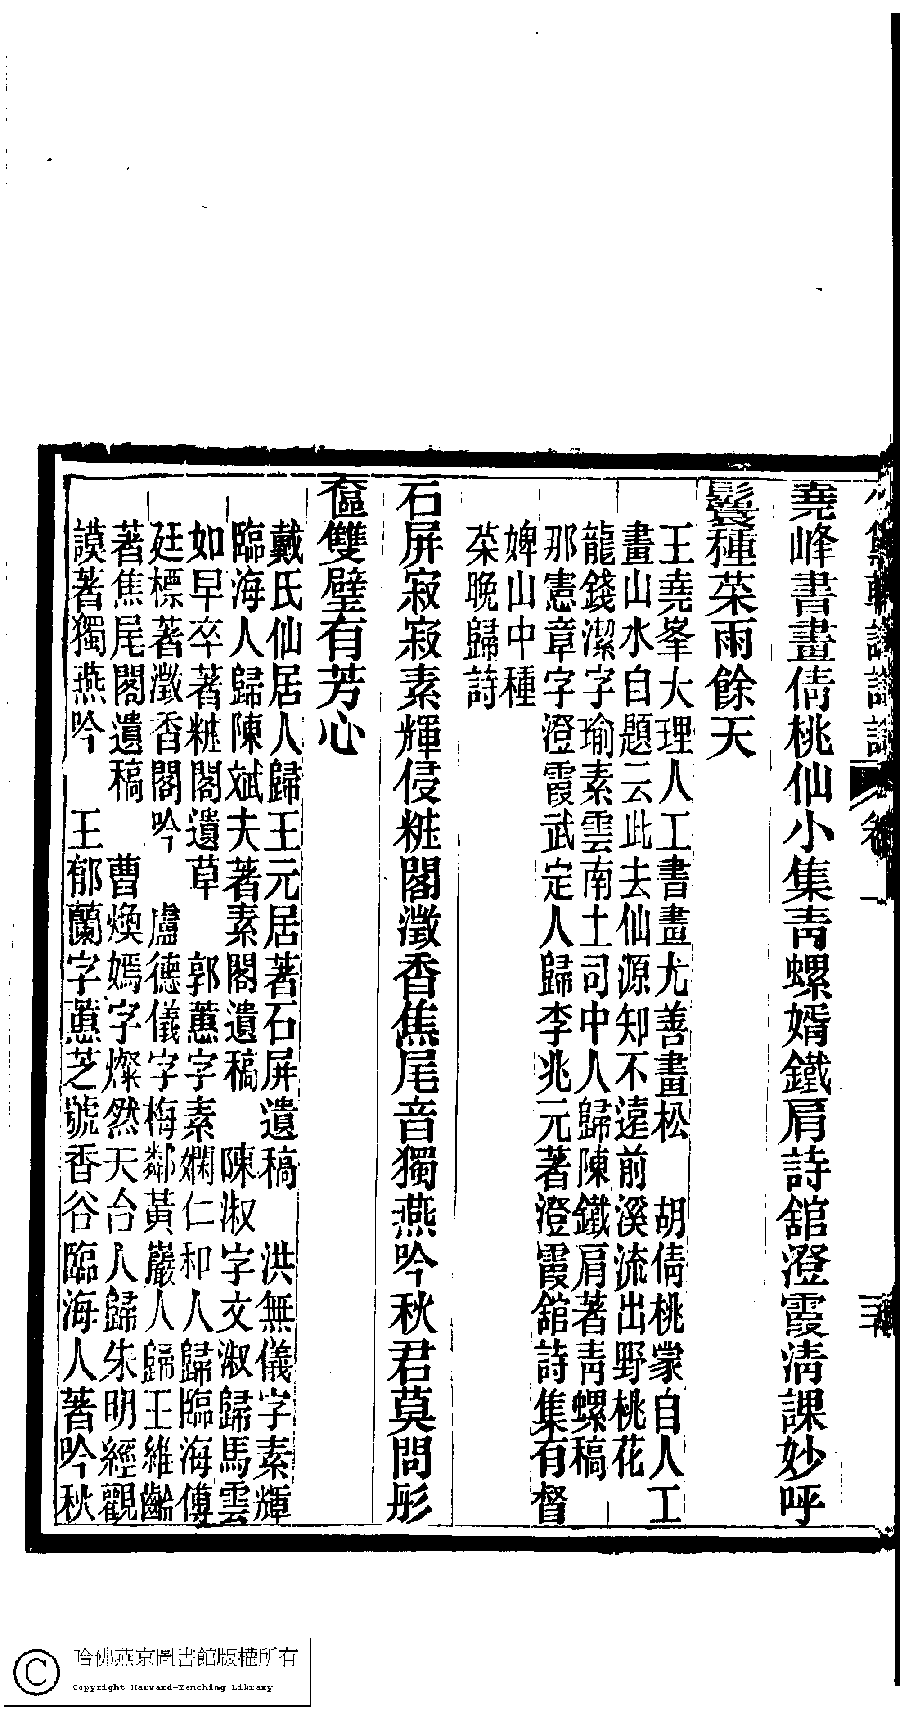 堯峰書畫倩桃仙小集靑螺婿鐵肩詩舘澄霞淸課妙呼
鬟種菜雨餘天
王堯峯大理人工書畫尤善畫松　胡倩桃蒙自人工
畫山水自題云此去仙源知不遠前溪流出野桃花
龍錢潔字瑜素雲南土司中人歸陳鐵肩著靑螺稿
那憲章字澄霞武定人歸李兆元著澄霞舘詩集有督
婢山中種
菜晚歸詩
石屏寂寂素輝侵粧閣澂香焦尾音獨燕吟秋君莫問彤
奩雙璧有芳心
戴氏仙居人歸王元居著石屏遺稿　洪無儀字素輝
臨海人歸陳斌夫著素閣遺稿　陳淑字文淑歸馬雲
如早卒著粧閣遺草　郭蕙字素嫻仁和人歸臨海傅
廷標著澂香閣吟　盧德儀字梅鄰黃巖人歸王維齡
著焦尾閣遺稿　曹煥嫣字燦然天台人歸朱明經觀
謨著獨燕吟　王郁蘭字蕙芝號香谷臨海人著吟秋
哈佛燕京圖書館版權所有
Copyright Harvard-Yenching Library